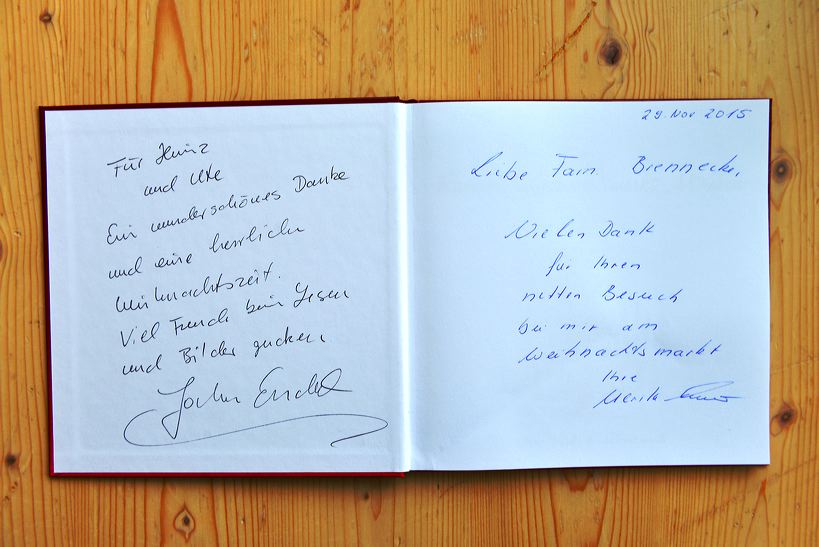 Für Heinz
und Ute
Ein wunderschönes Danke
und eine herrliche
Weihnachtszeit.
Viel Freude beim Lesen
und Bilder gucken
29. Nov 2015
Liebe Fam. Brennecke,
Vielen Dank
für Ihren
netten Besuch
bei mir am
Weihnachtsmarkt
Ihre